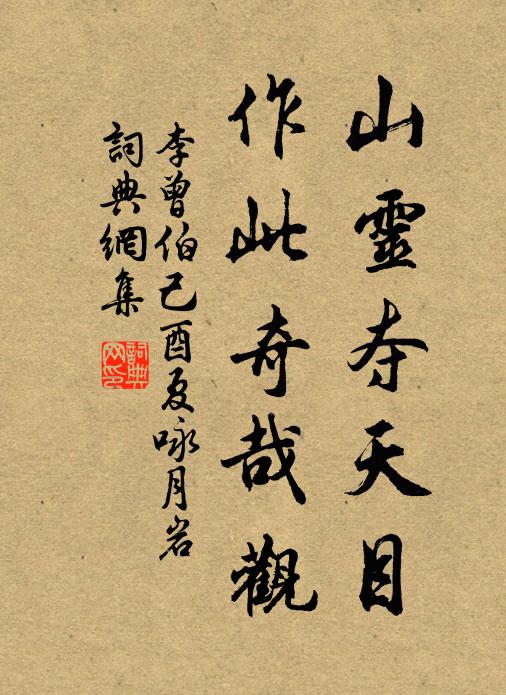 山靈夺天目
作此奇哉觀
李曾伯己酉夏咏月岩
詞典網集
詞典网印